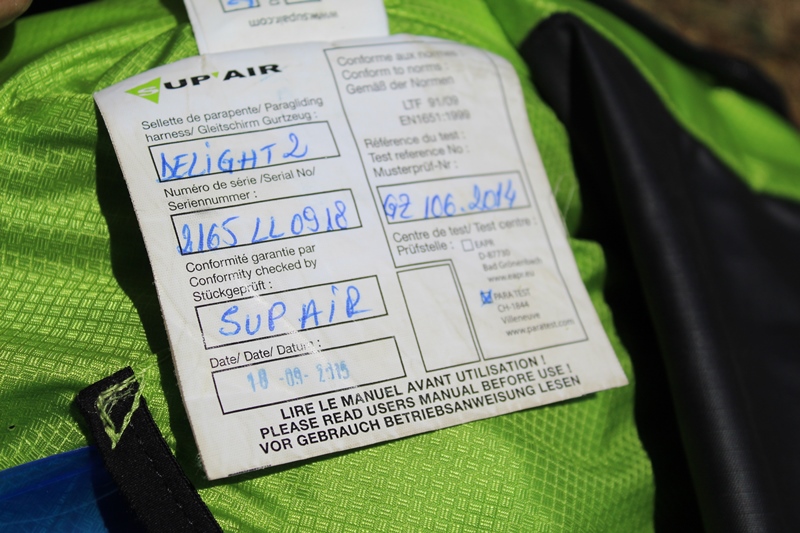 www.supair.com
SUP'AIR
Sellette de parapente/ Paragliding
harness/ Gleitschirm Gurtzeug :
DELIGHT 2
Numéro de série /Serial No/
Seriennummer :
2165 LL 0918
Conformité garantie par
Conformity checked by
Stückgeprüft :
SUP AIR
Date/ Date/ Datum :
18 -09- 2015
Conforme aux normes
Conform to norms :
Gemäß der Normen
LTF 91/09
EN1651:1999
Référence du test :
Test reference No :
Musterprüf-Nr :
GZ 106.2014
Centre de test/ Test centre :
Prüfstelle :
EAPR
D-87730
Bad Grönenbach
www.eapr.eu
PARA TEST
CH-1844
Villeneuve
www.paratest.com
LIRE LE MANUEL AVANT UTILISATION !
PLEASE READ USERS MANUAL BEFORE USE !
VOR GEBRAUCH BETRIEBSANWEISUNG LESEN